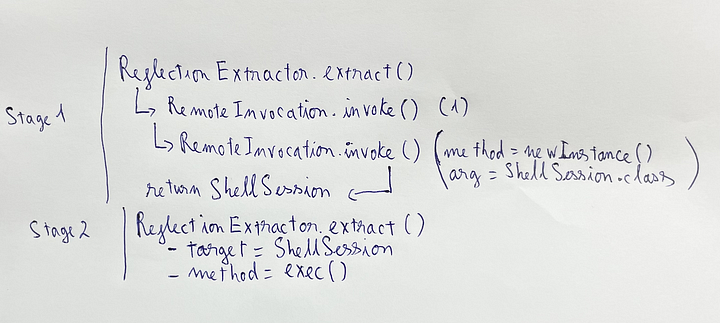 Stage 1
Reflection Extractor.extract()
↳ Remote Invocation.invoke() (1)
↳ Remote Invocation.invoke() (method = newInstance()
arg = ShellSession.class)
return ShellSession
Stage 2
Reflection Extractor.extract()
- target = ShellSession
- method = exec()